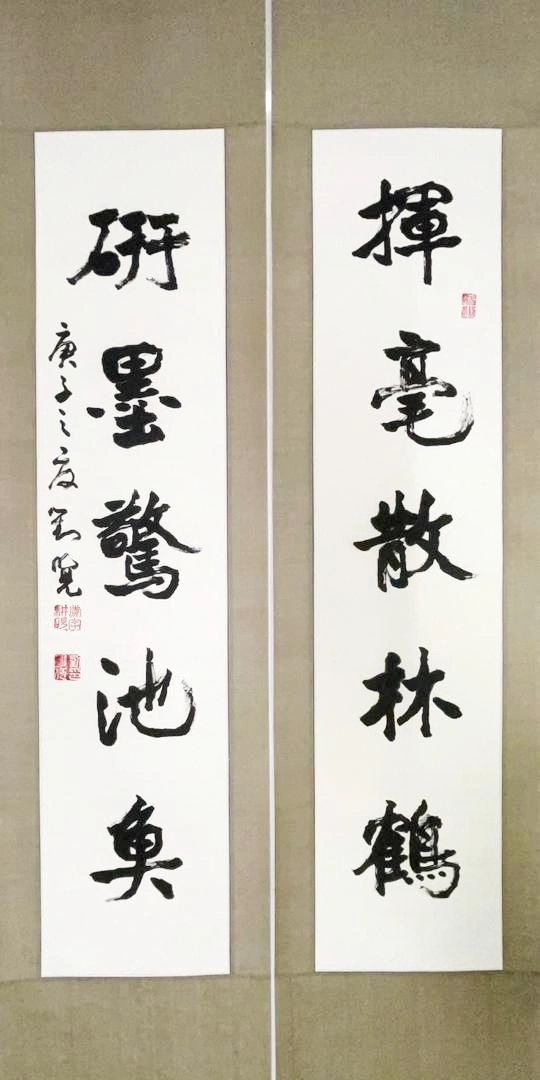 揮毫散林鶴
研墨驚池魚
庚子之夏劉覺